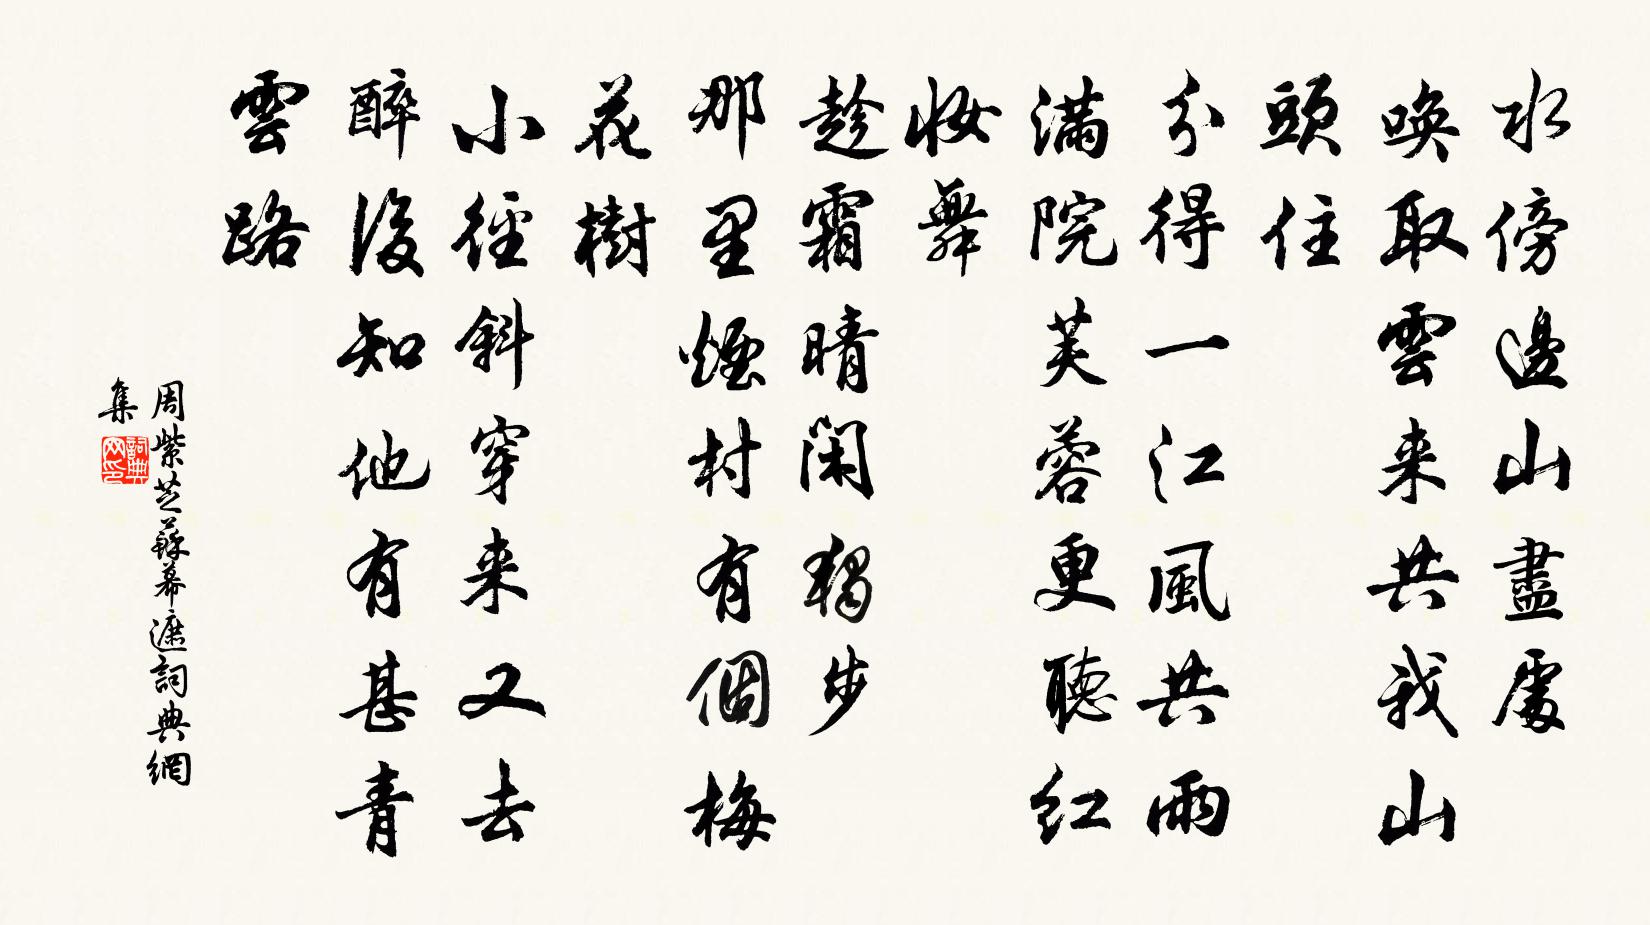 水傍邊山盡處
喚取雲来共我山
頭住
分得一江風共雨
滿院芙蓉更聽紅
妝舞
趁霜晴閑獨步
那里煙村有個梅
花樹
小徑斜穿来又去
醉後知他有甚青
雲路
周紫芝蘇幕遮詞典網
集
詞典
网印